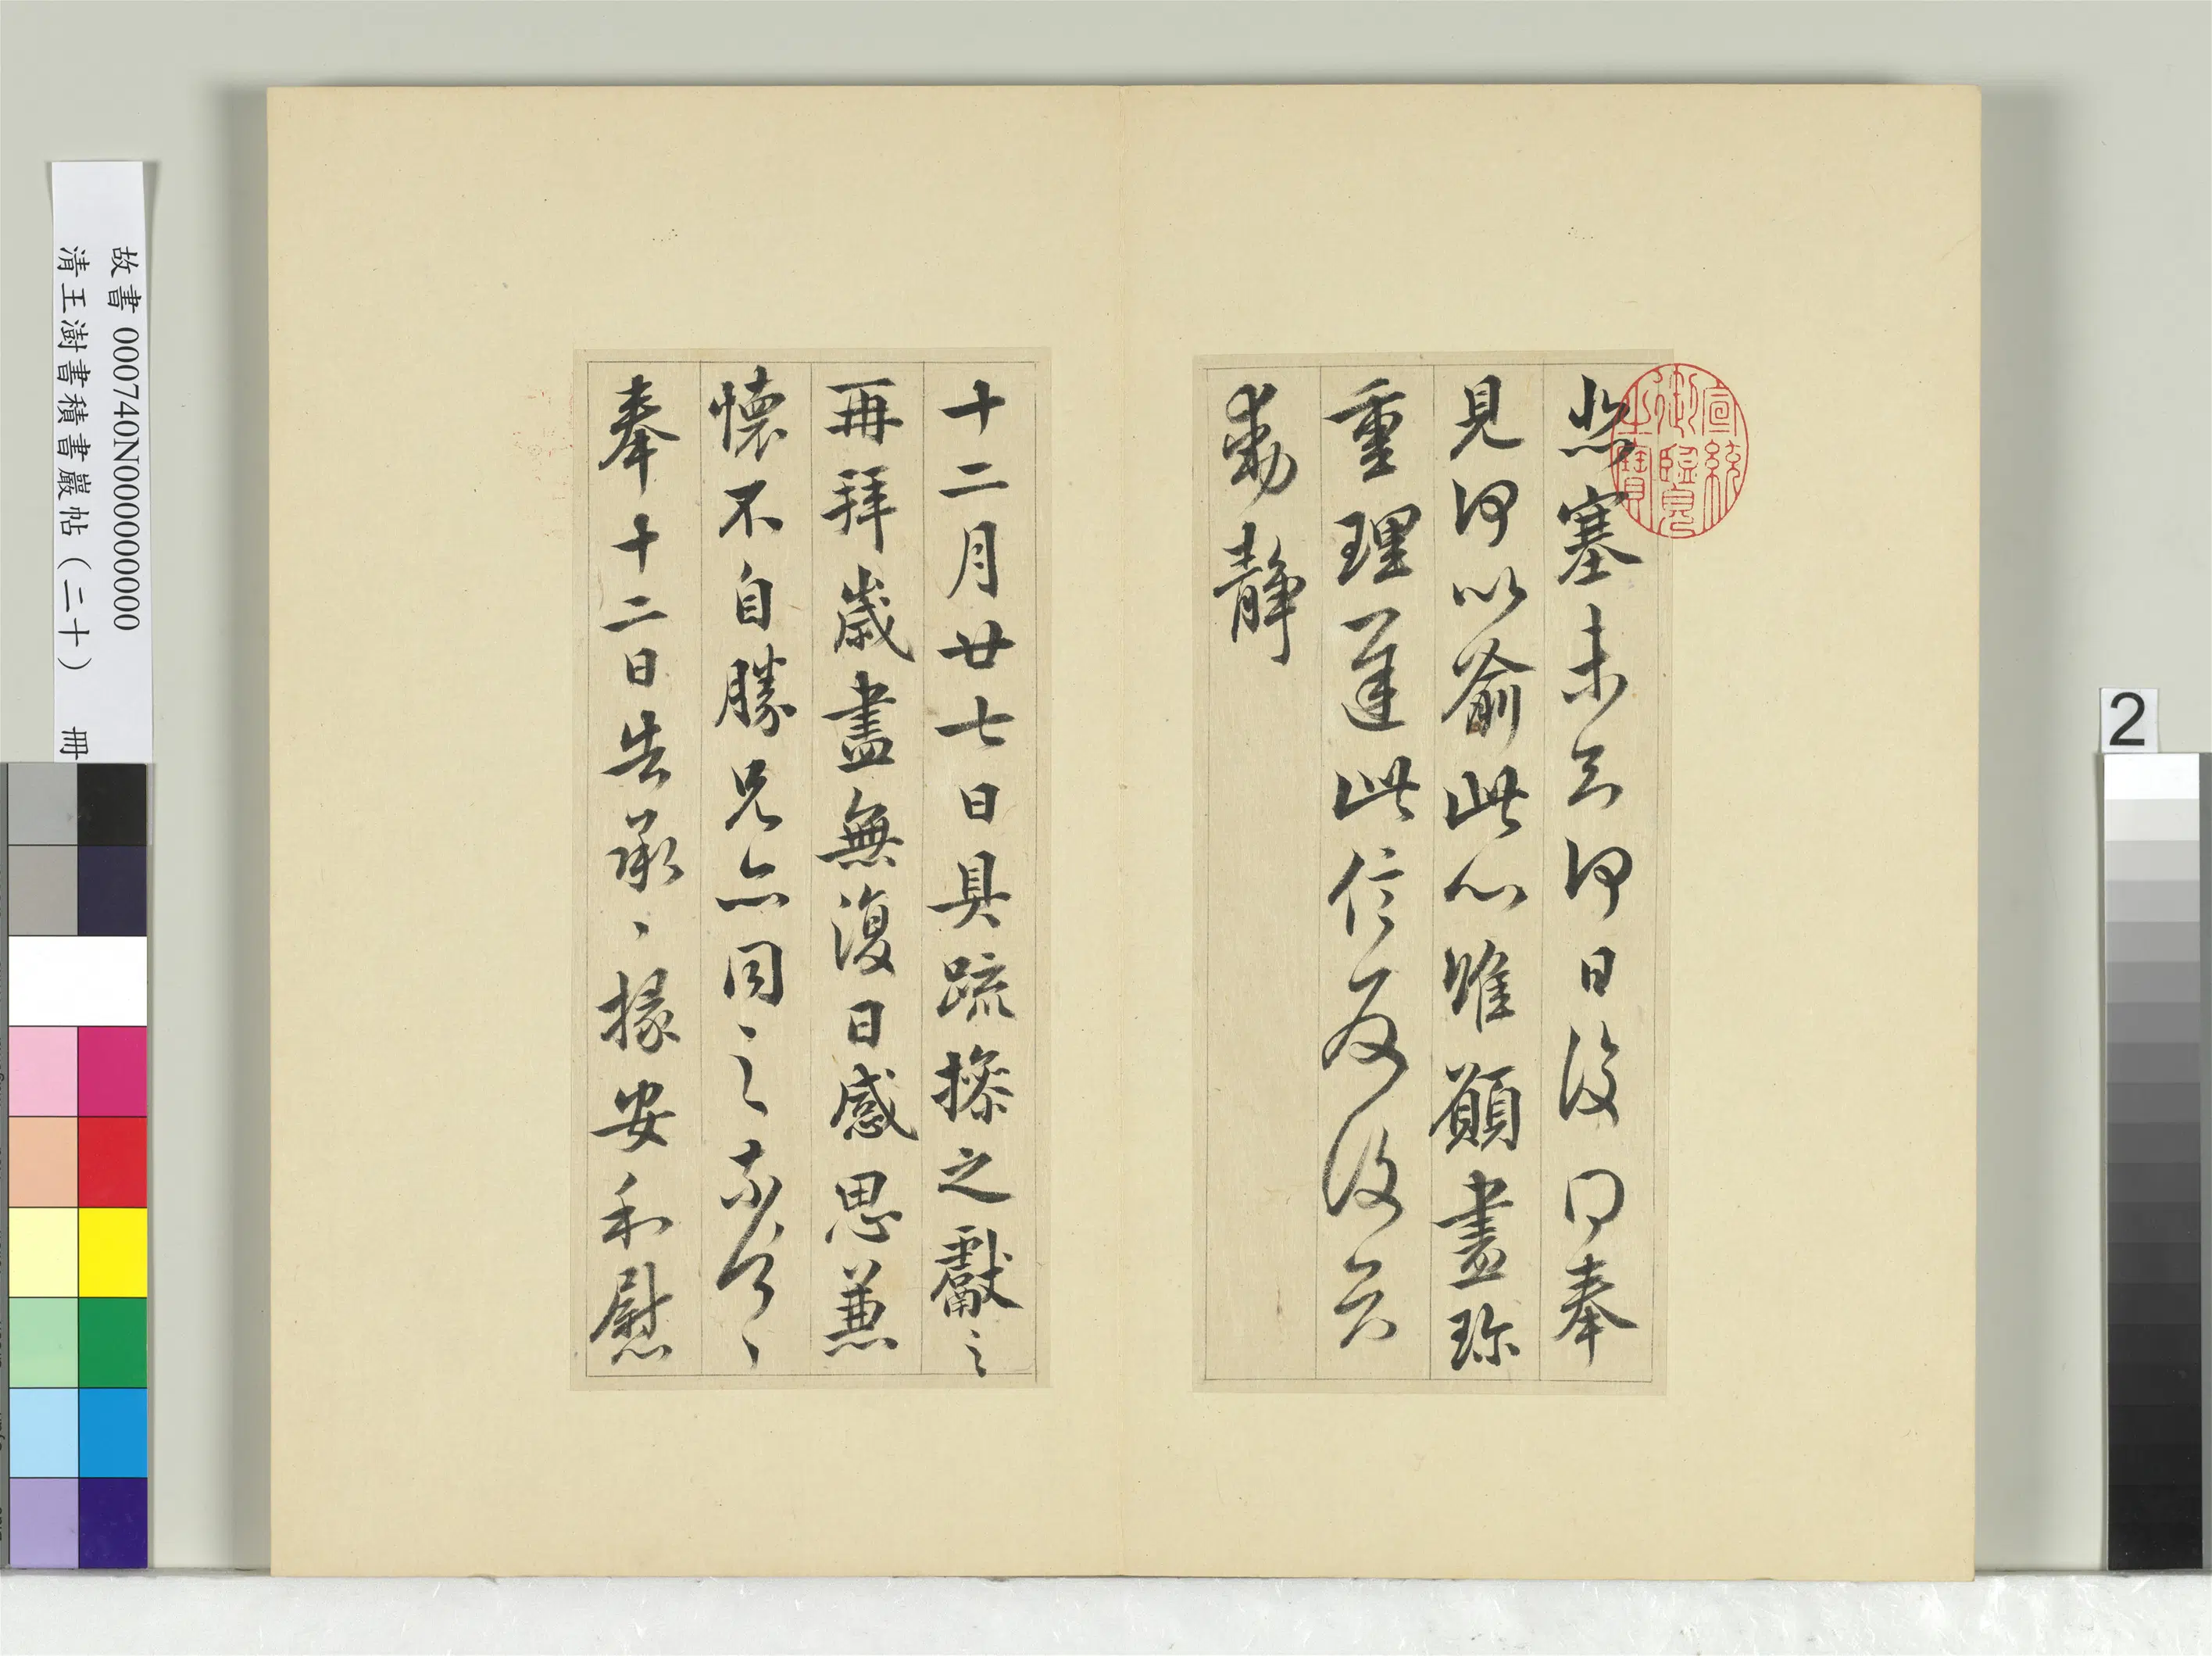 宣統御覽之寶
悲塞未知何日復得奉
見何以喻此心唯願盡珍
重理遲此信反復知
動靜
十二月廿七日具疏操之獻之
再拜歲盡無復日感思兼
懷不自勝兄亦同〻之〻奈何〻
奉十二日告承〻掾安和慰
故書 000740N000000000
清王澍書積書巖帖（二十） 冊
2